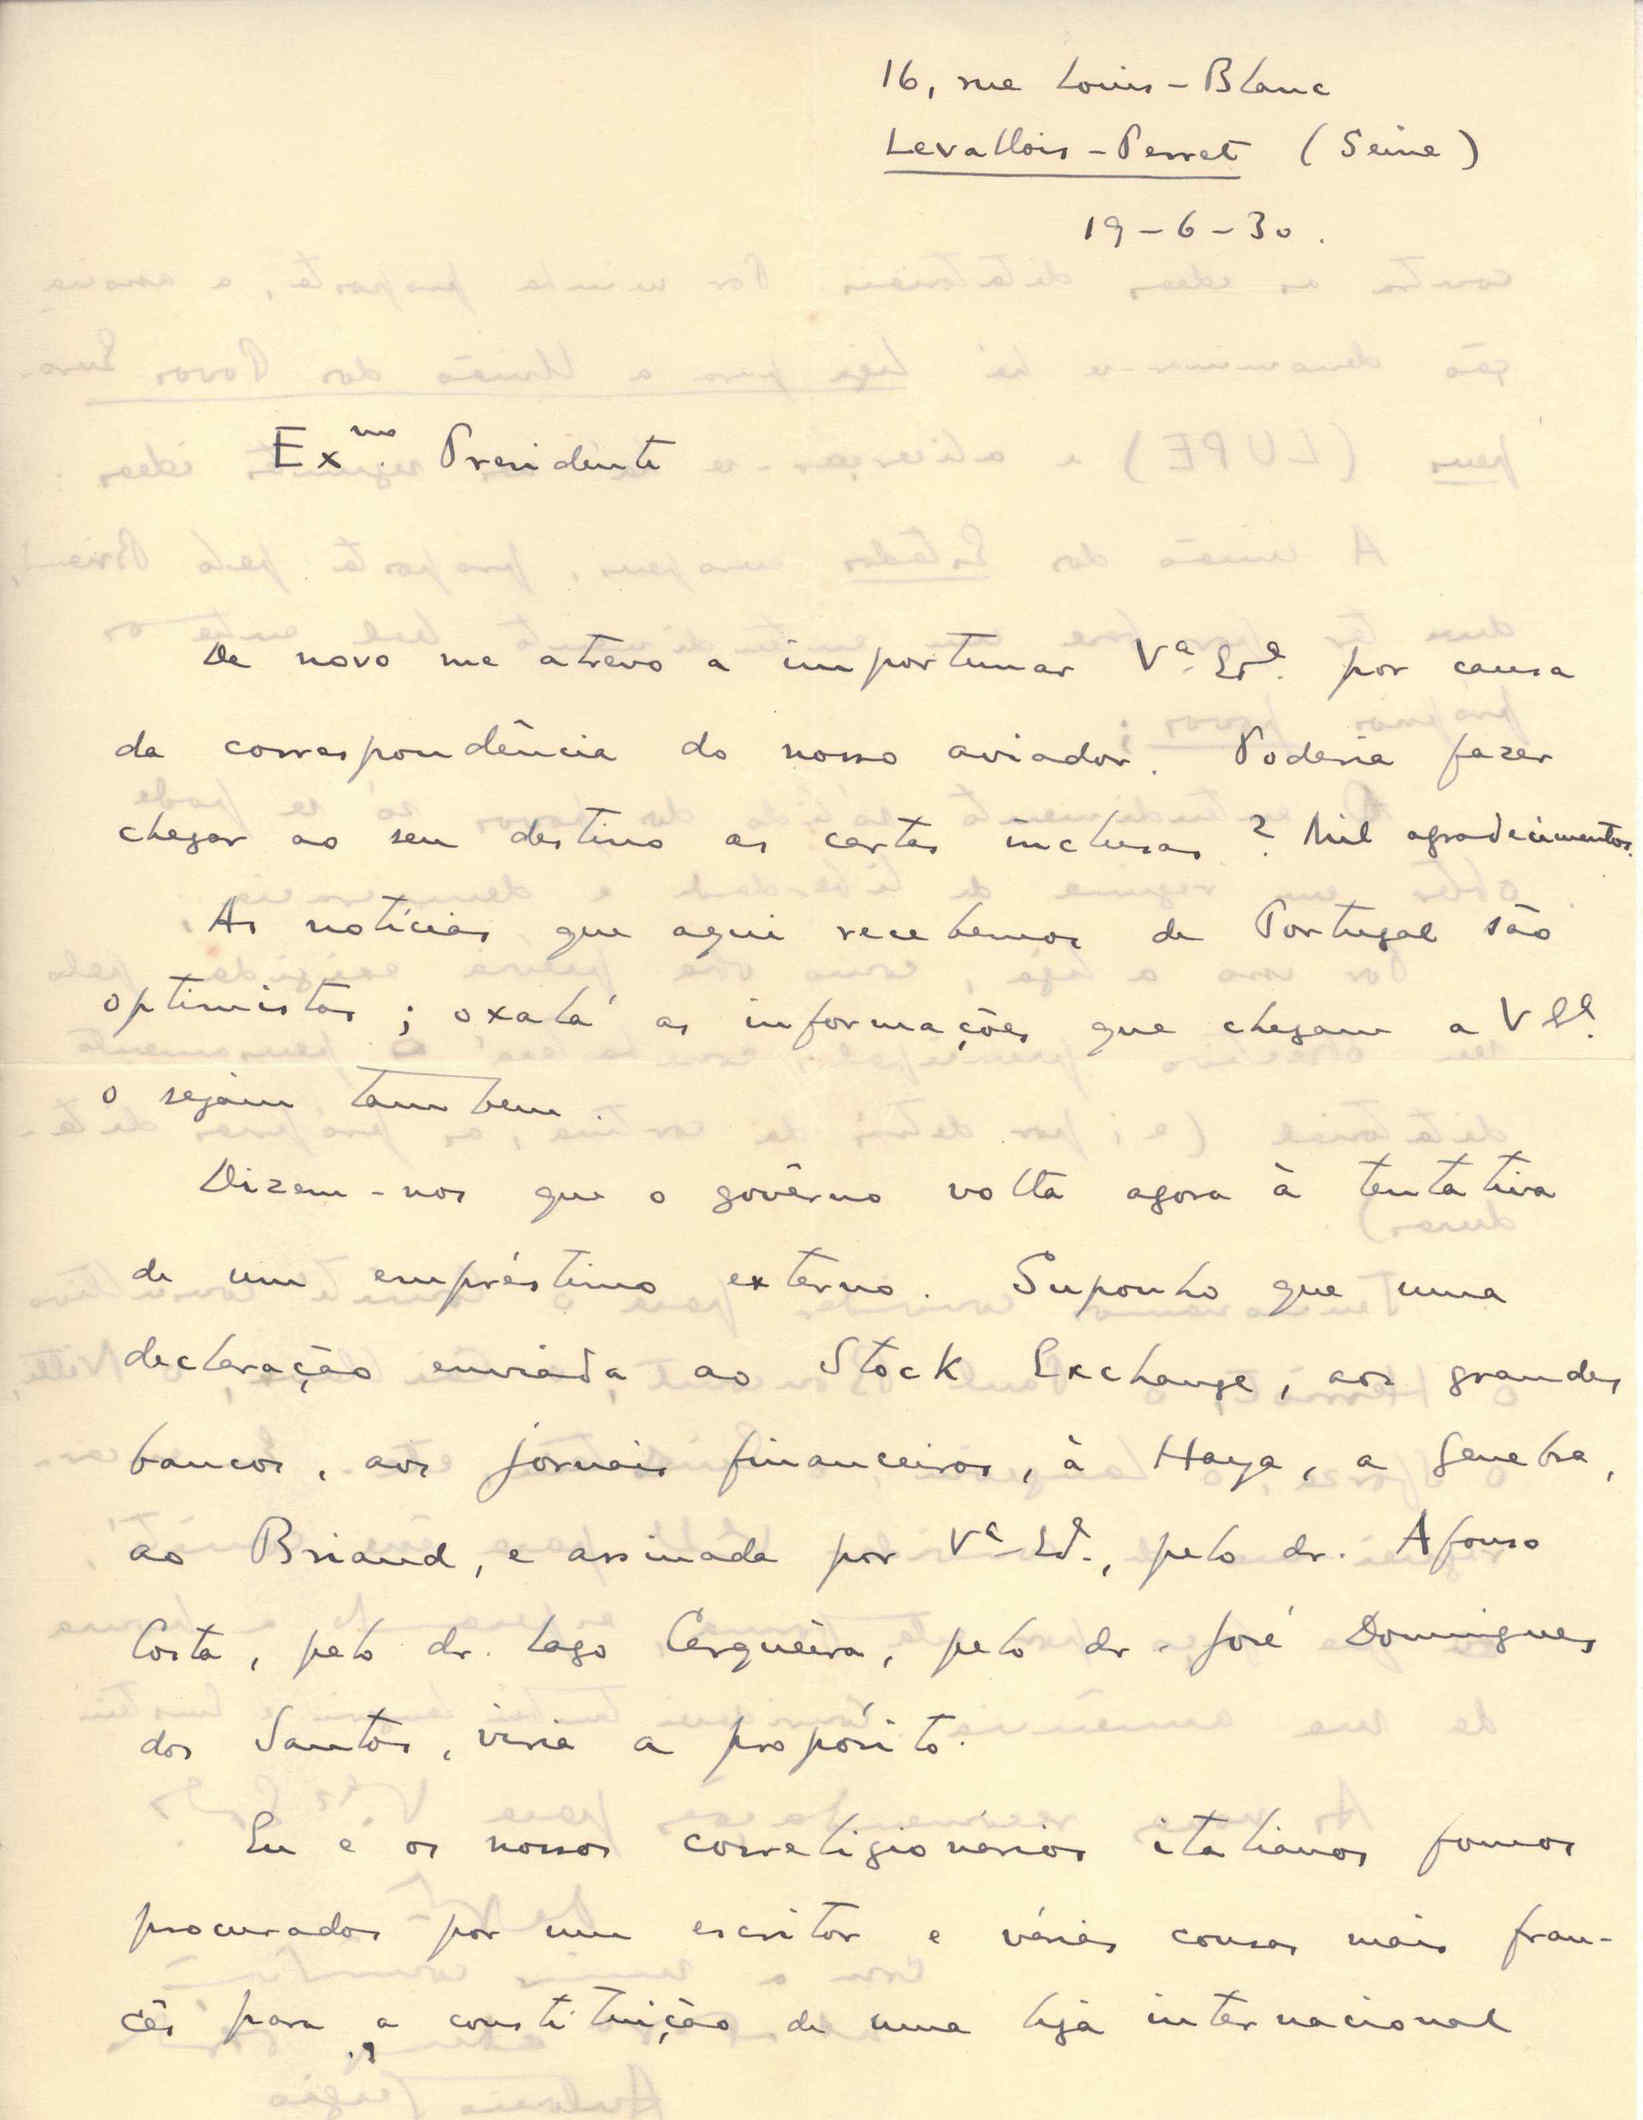 16, rue Louis-Blanc
Levallois-Perret (Seine)
19-6-30.
Exmo. Presidente
De novo me atrevo a importunar Va. Exa. por causa
da correspondência do nosso aviador. Poderia fazer
chegar ao seu destino as cartas inclusas? Mil agradecimentos.
As notícias que aqui recebemos de Portugal são
optimistas; oxalá as informações que chegam a V Exa.
o sejam tambem.
Dizem-nos que o govêrno volta agora à tentativa
de um empréstimo externo. Suponho que uma
declaração enviada ao Stock Exchange, aos grandes
bancos, aos jornais financeiros, à Haya, a Genebra,
ao Briand, e assinada por Va. Exa., pelo dr. Afonso
Costa, pelo dr. Lago Cerqueira, pelo dr. José Domingues
dos Santos, viria a propósito.
Eu e os nossos correligionários italianos fomos
procurados por um escritor e várias cousas mais fran-
cês para a constituição de uma liga internacional